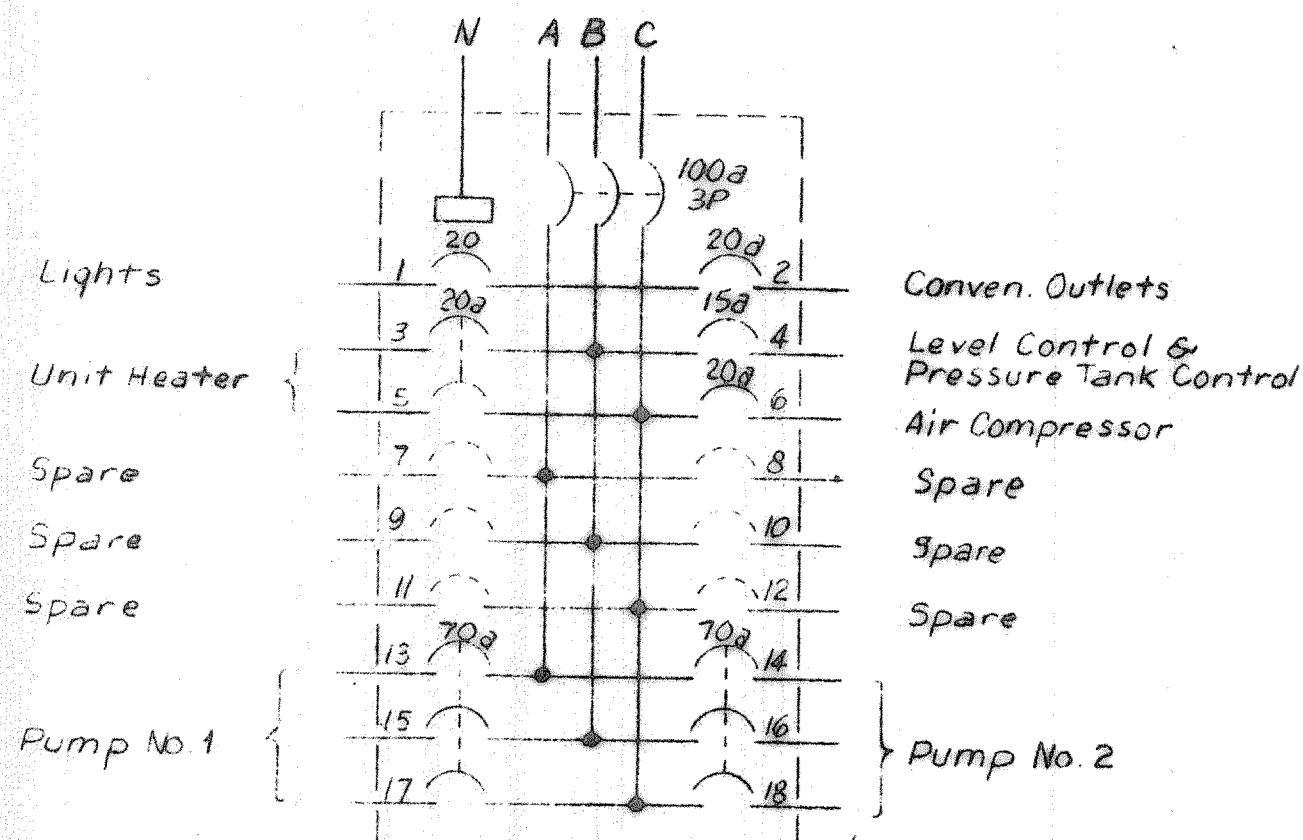 N A B C
100a
3P
20 20a
Lights 1 2 Conven. Outlets
20a 15a
3 4 Level Control &
Pressure Tank Control
Unit Heater
20a
5 6 Air Compressor
Spare 7 8 Spare
Spare 9 10 Spare
Spare 11 12 Spare
70a 70a
13 14
Pump No. 1 15 16 Pump No. 2
17 18